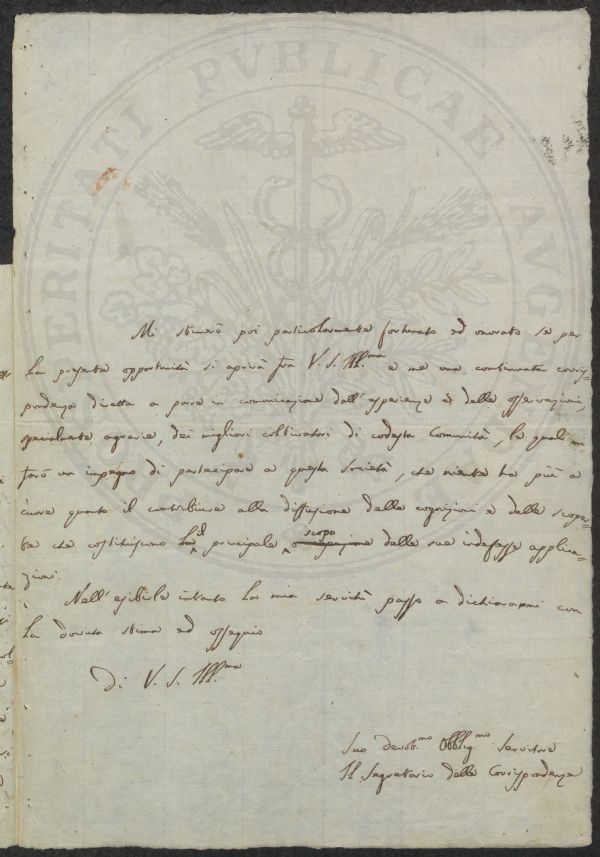 PROSPERITATI PVBLICAE AVGENDAE
Mi stimerò poi particolarmente fortunato ed onorato se per
la presente opportunità si aprirà fra V. S. Ill.ma e me una continuata corris-
pondenza diretta a porre in comunicazione dell'esperienze e delle osservazioni,
agrarie, dei migliori coltivatori di codesta Comunità, le quali mi
farò un impegno di partecipare a questa Società, che niente ha più a
cuore quanto il contribuire alla diffusione delle cognizioni e delle scoper-
te che costituiscono il principale scopo delle sue indefesse applica-
zioni.
Nell'esibirle intanto la mia servitù passo a dichiararmi con
la dovuta stima ed ossequio
Di V. S. Ill.ma
Suo devot.mo Obblig.mo Servitore
Il Segretario delle Corrispondenze